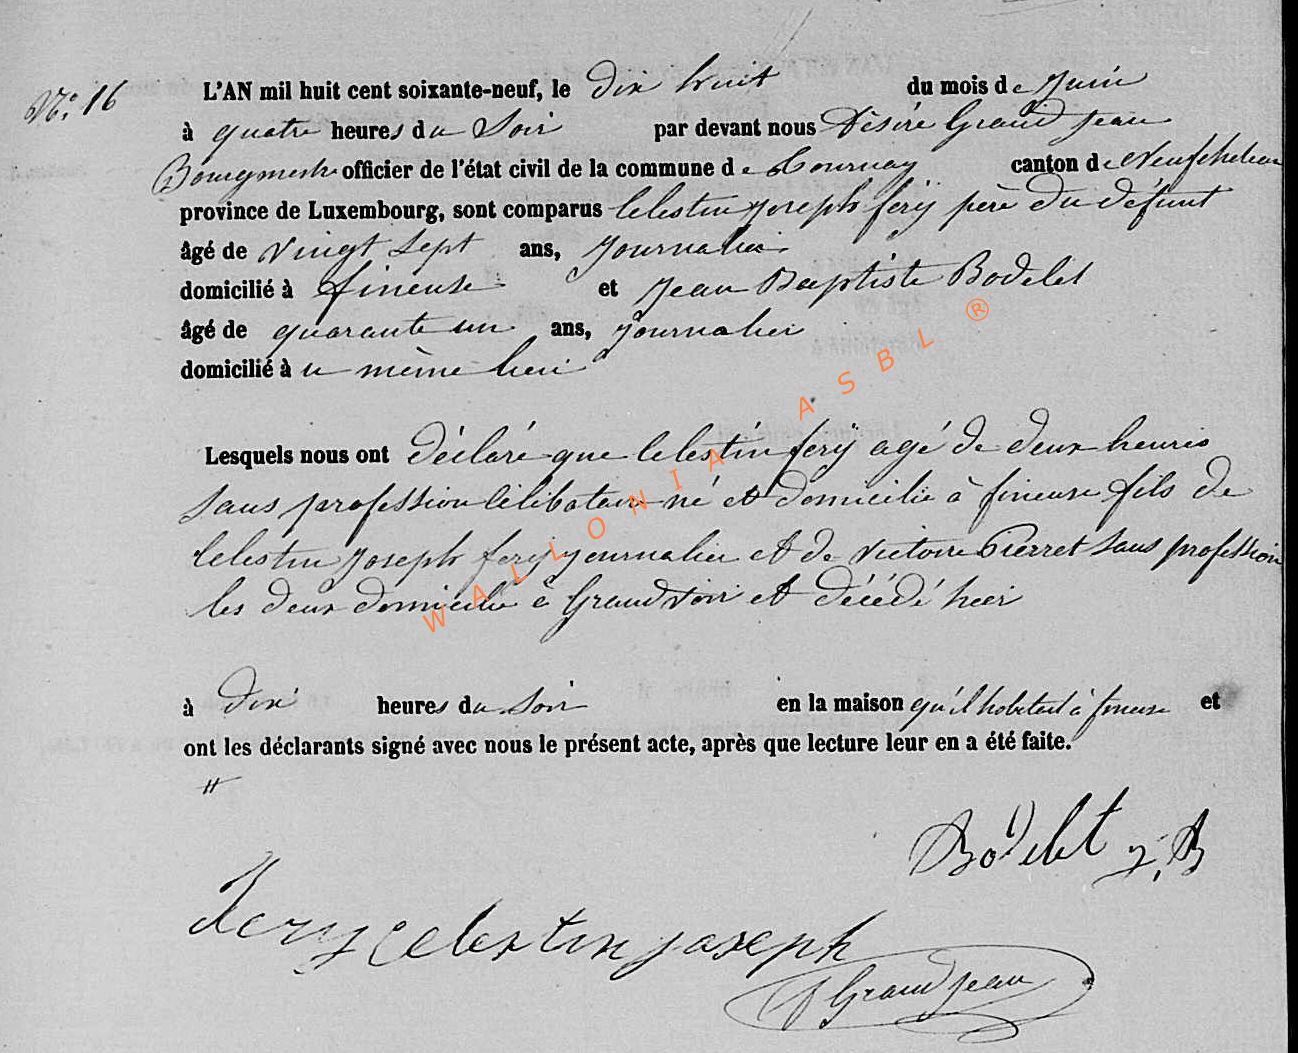 No. 16
L'AN mil huit cent soixante-neuf, le dix huit du mois de Juin
à quatre heures du Soir par devant nous Désiré Grand Jean
Bourgmestre officier de l'état civil de la commune de Tournay canton de Neufchateau
province de Luxembourg, sont comparus Celestin Joseph fery père du défunt
âgé de vingt sept ans, Journalier
domicilié à fineuse et Jean Baptiste Bodelet
âgé de quarante un ans, Journalier
domicilié à u même lieu
Lesquels nous ont déclaré que Celestin fery agé de deux heures
sans profession Célibataire né et domicilié à fineuse fils de
Celestin Joseph fery journalier et de Victoire Pierret sans profession
les deux domicilié à Grandvoir et décédé hier
à dix heures du soir en la maison qu'il habitait à fineuse et
ont les déclarants signé avec nous le présent acte, après que lecture leur en a été faite.
Bodelet J, B
fery Celestin joseph
D Grand Jean
WALLONIA ASBL ®